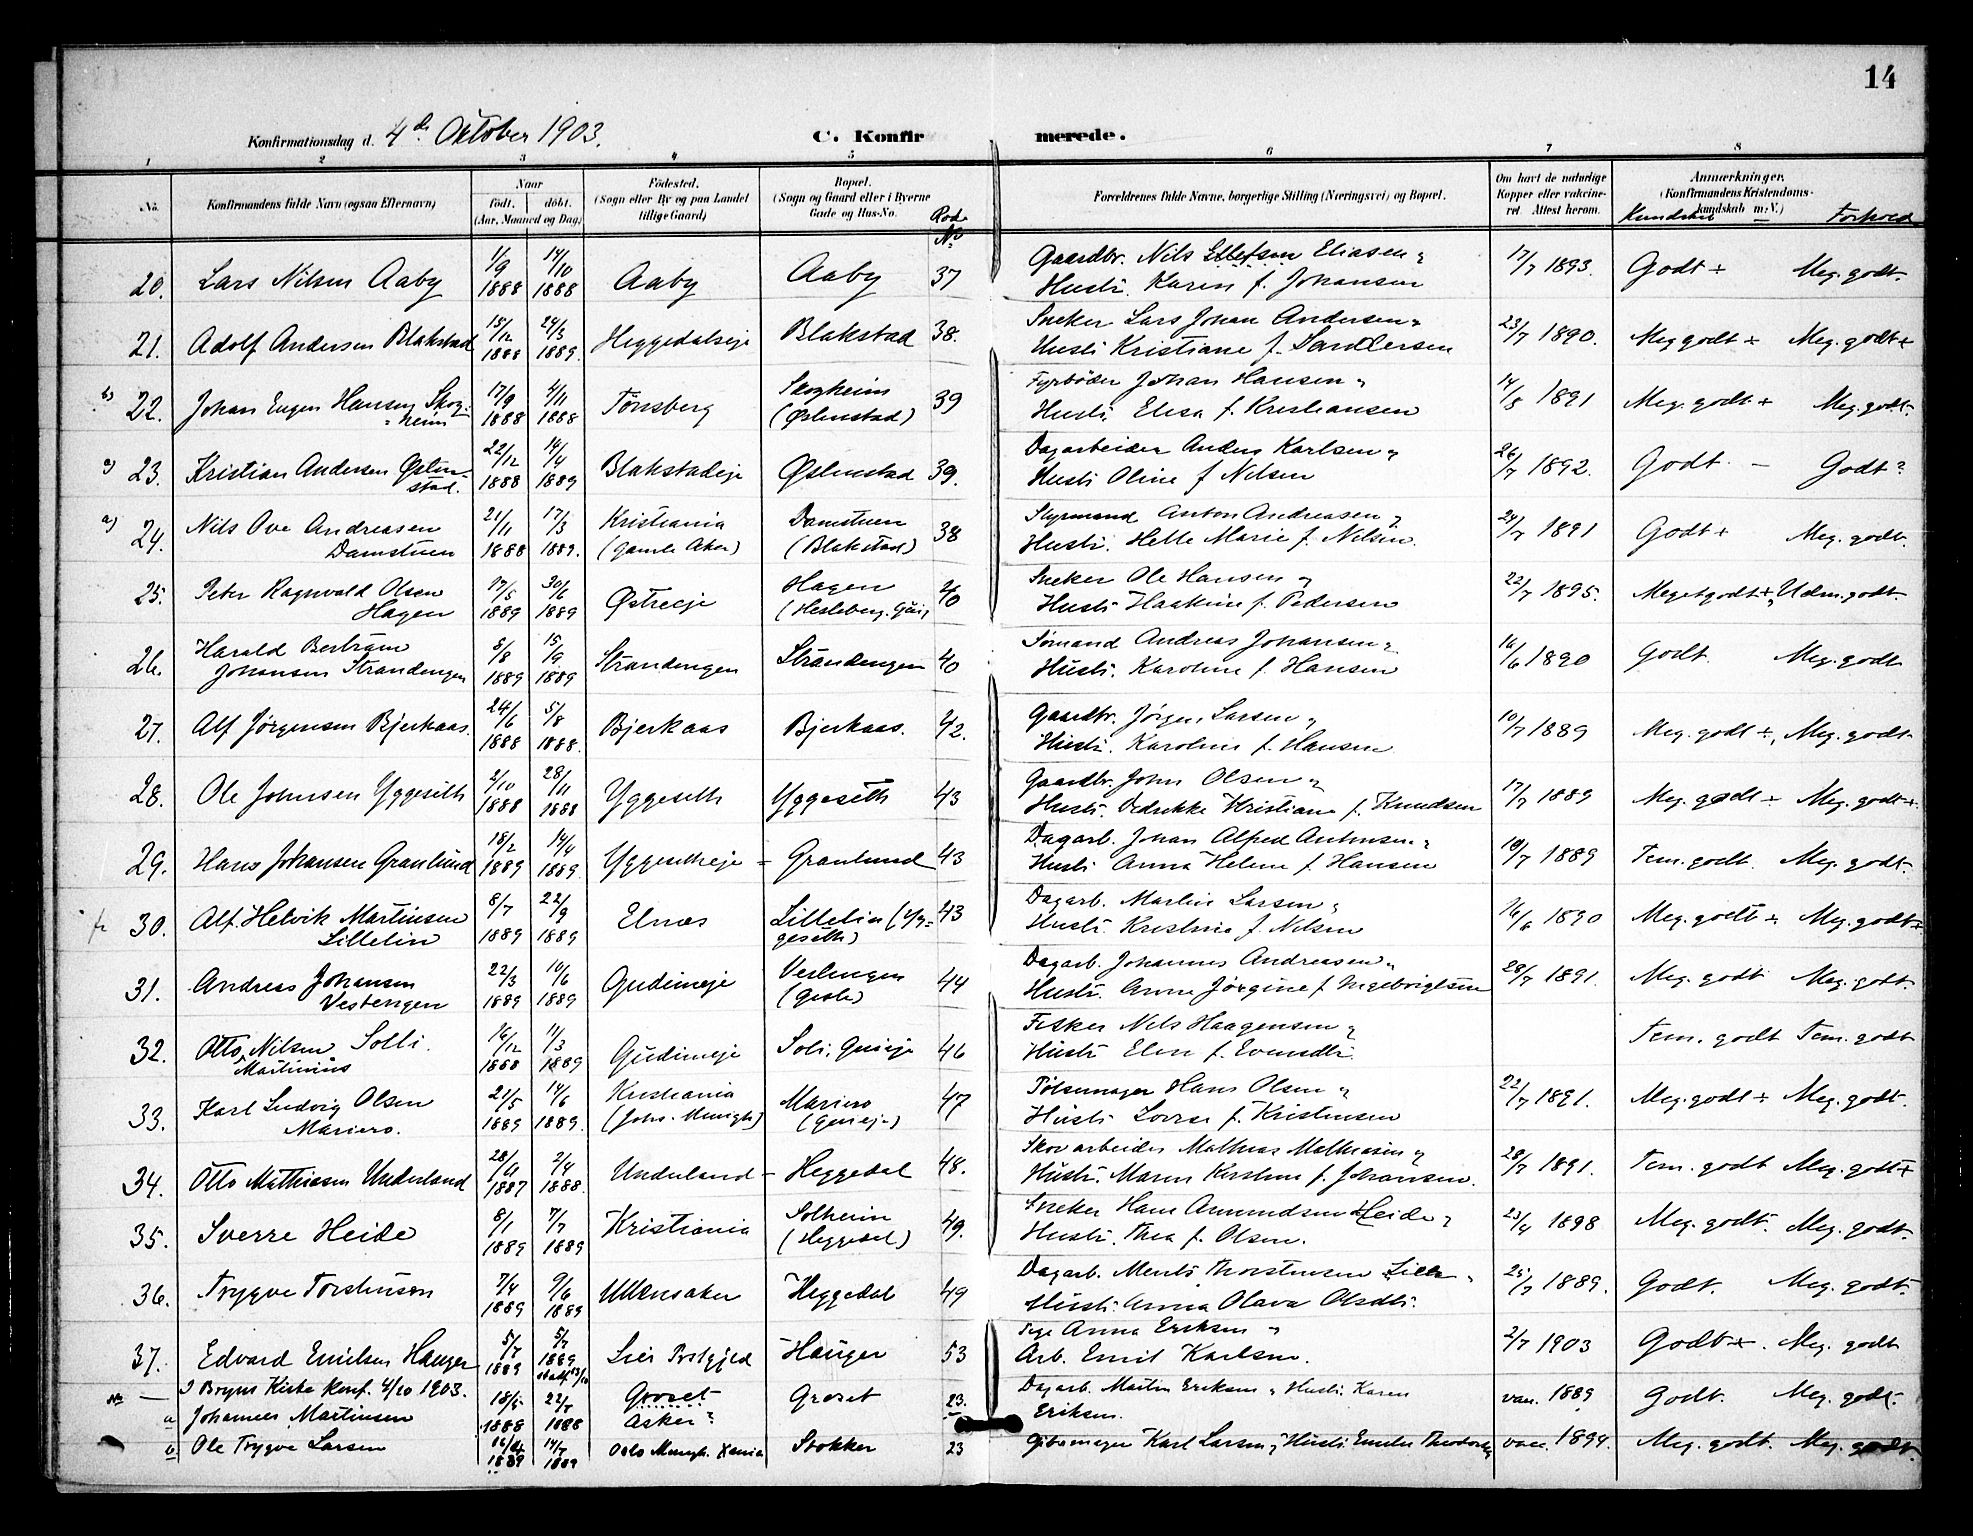 14
Konfirmationsdag d. 4de Oktober 1903. C. Konfirmerede.
1 2 3 4 5 6 7 8
No. Konfirmandens fulde Navn (ogsaa Efternavn) Naar født. døbt. (Aar, Maaned og Dag) Fødested. (Sogn eller By og paa Landet tillige Gaard) Bopæl. (Sogn og Gaard eller i Byerne Gade og Hus-No. Rode No Forældrenes fulde Navne, borgerlige Stilling (Næringsvei) og Bopæl. Om havt de naturlige Kopper eller vakcineret. Attest herom. Anmærkninger. (Konfirmandens Kristendomskundskab m. V.) Kundskab Forhold
20. Lars Nilsen Aaby 1/9 1888 14/10 1888 Aaby Aaby 37 Gaardbr. Nils Ellefsen Eliasen Hustr. Karen f. Johansen 17/7 1893. Godt + Meg. godt.
21. Adolf Andersen Blakstad 15/12 1888 24/3 1889. Heggedalseje Blakstad 38. Sneker Lars Johan Andersen Hustr. Kristiane f. 23/7 1890. Meg godt + Meg. godt +
22. Johan Eugen Hansen Skogheim 17/9 1888 4/11 1888 Tönsberg Skogheim (Østenstad) 39 Fyrbøder Johan Hansen Hustr. Elisa f. Kristiansen 14/8 1891 Meg. godt + Meg. godt.
23. Kristian Andersen Østenstad. 22/12 1888 14/4 1889 Blakstadeje Østenstad 39. Dagarbeider Anders Karlsen Hustr. Oline f Nilsen 26/7 1892. Godt. – Godt?
24. Nils Ove Andreasen Damstuen 21/11 1888 17/3 1889. Kristiania (Gamle Aker) Damstuen (Blakstad) 38 Styrmand Anton Andreasen Hustr. Helle Marie f. Nilsen. 24/7 1891 Godt + Meg. godt.
25. Peter Ragnvald Olsen Hagen 17/5 1889 30/6 1889 Østreeje Hagen (Hesleberg. 40 Sneker Ole Hansen Hustr. Haakine f. Pedersen 22/7 1895. Meget godt + Udm. godt.
26. Harald Bertram Johansen Strandengen 5/8 1889 15/9 1889 Strandengen Strandengen 40 Sømand Andreas Johansen Hustr. Karoline f. Hansen 16/6 1890 Godt. Meg. godt
27. Alf Jørgensen Bjerkaas. 24/6 1888 5/8 1888. Bjerkaas Bjerkaas. 42. Gaardbr. Jørgen Larsen Hustr. Karoline f. Hansen 10/7 1889 Meg. godt +, Meg. godt
28. Ole Johnsen Yggeseth 2/10 1888 28/11 1888 Yggeseth Yggeseth 43 Gaardbr. John Olsen Hustr. Dedrikke Kristiane f. Knudsen 17/7 1889 Meg. godt + Meg. godt +
29. Hans Johansen Granlund 18/2 1889 14/4 1889. Yggesetheje Granlund 43 Dagarb. Johan Alfred Antonsen Hustr Anna Helene f. Hansen 10/7 1889 Tem. godt. Meg. godt.
30. Alf. Helvik Martinsen Lillelien 8/7 1889 22/9 1889 Elnæs Lillelien (Yggeseth) 43 Dagarb. Martin Larsen Hustr. Kristine f. Nilsen 16/6 1890 Meg. godt + Meg. godt +
31. Andreas Johansen Vestengen 22/3 1889 10/6 1889 Gudimeje Vestengen (Gisle) 44 Dagarb. Johannes Andreasen Hustr. Anne Jørgine f Ingebrigtsen 28/7 1891. Meg. godt Meg. godt.
32. Otto Martinius Nilsen Solli. 16/12 1888 11/3 1889 Gudimeje Soli, Guieje 46 Fisker Nils Haagensen Hustr Elen f. Evensdtr. Tem. godt Tem. godt
33. Karl Ludvig Olsen Mariero. 21/5 1889 14/6 1889. Kristiania (Johs. Menigh) Mariero (Guieje) 47 Pølsemager Hans Olsen Hustr Lovise f. Kristensen 22/7 1891. Meg. godt + Meg. godt.
34. Otto Mathiasen Underland 28/11 1887 2/4 1888. Underland Heggedal 48. Skovarbeider Mathias Mathiasen Hustr. Maren Kirstine f. Johansen. 28/7 1891. Tem. godt Meg. godt +
35. Sverre Heide 8/1 1889 7/7 1889 Kristiania Solheim (Heggedal) 49. Sneker Hans Amundsen Heide Hustr. Thea f. Olsen. 23/4 1898 Meg. godt. Meg. godt.
36. Trygve Torstensen 7/4 1889 9/6 1889 Ullensaker Heggedal 49 Dagarb. Mentz Thorstensen Hustr. Anna Olava Olsdtr. 25/7 1889. Godt. Meg. godt.
37. Edvard Emilsen Hauger 5/5 1889 5/7 1889 Lier Prstgjeld Hauger 53 Pige Anna Eriksen Arb. Emil Karlsen. 2/7 1903 Godt +. Meg. godt
I Bryns Kirke konf. 4/10 1903.
a Johannes Martinsen 18/5 1888 22/7 1888 Groset Asker? Groset 23. Dagarb. Martin Eriksen Hustr Karen Eriksen. vac. 1889 Godt. Meg. godt.
b Ole Trygve Larsen 16/4 1889 14/7 1889 Oslo Menigh. Xania Stokker 23 Gibsmager Karl Larsen, Hustr Emilie vacc. 1894. Meg. godt. Meg. godt.